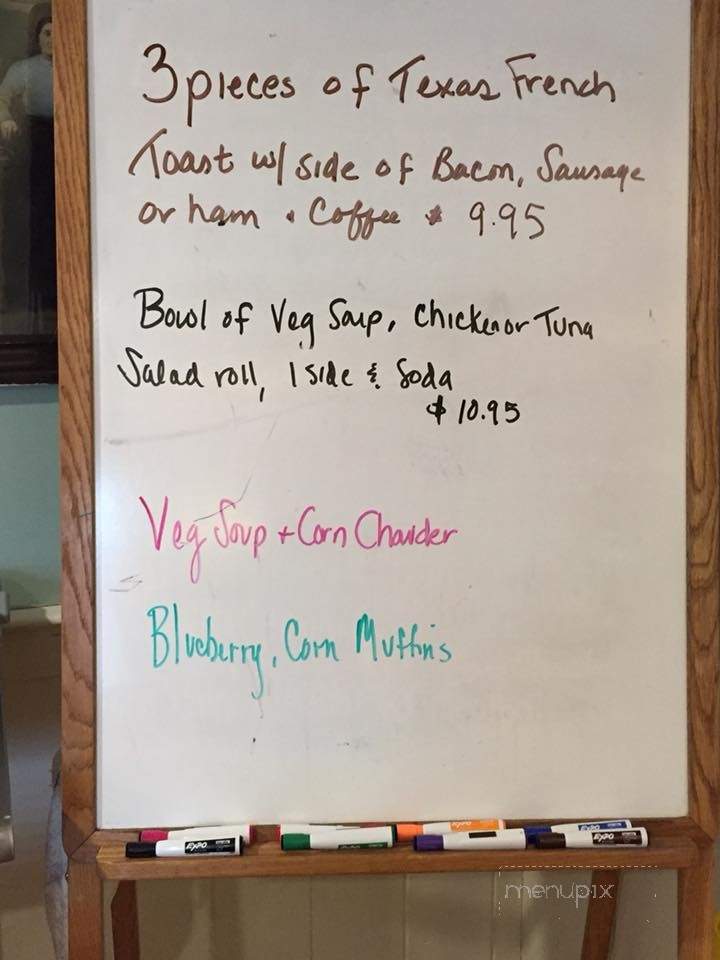 3 pieces of Texas French
Toast w/ side of Bacon, Sausage
or ham & Coffee $ 9.95
Bowl of Veg Soup, Chicken or Tuna
Salad roll, 1 side & Soda
$ 10.95
Veg Soup + Corn Chowder
Blueberry, Corn Muffins
EXPO
EXPO
EXPO
EXPO
EXPO
menupix